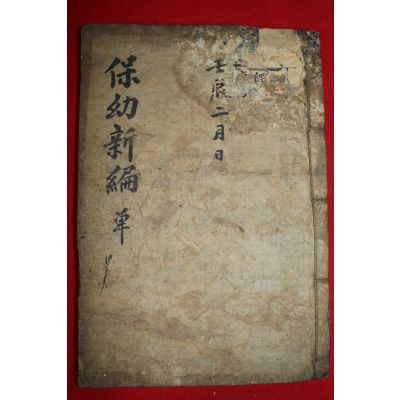 壬辰二月日
保幼新編 単